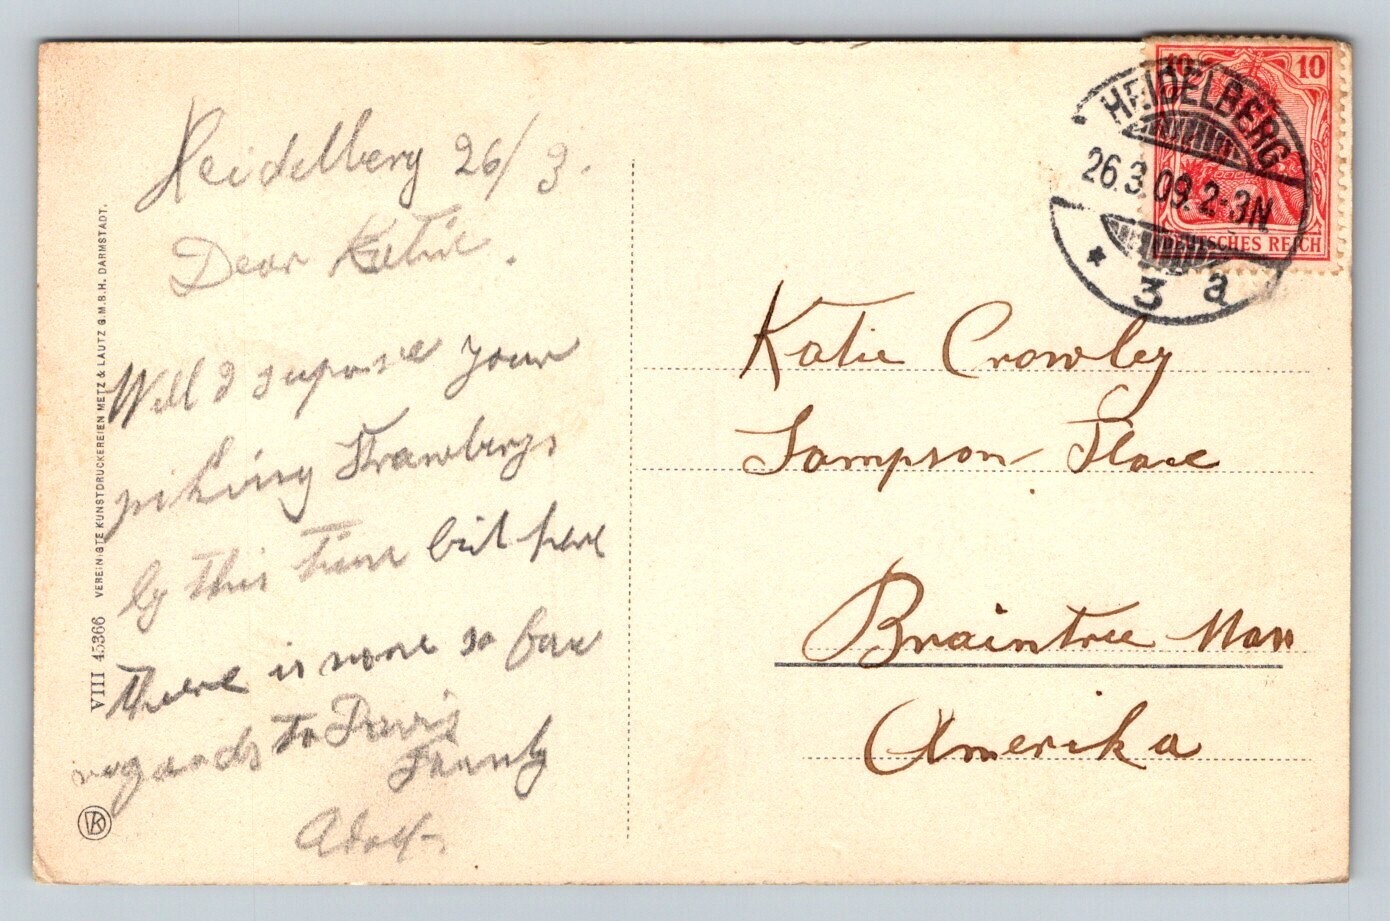 Heidelberg 26/3.
Dear Katie.
Well I supose your
piking Strawberys
by this time but here
there is none so far
regards to
Family
Adolf.
VIII 45366 VEREINIGTE KUNSTDRUCKEREIEN METZ & LAUTZ G.M.B.H. DARMSTADT.
VK
10 10
DEUTSCHES REICH
HEIDELBERG
26.3.09.2-3N
* 3 a
Katie Crowley
Sampson Place
Braintree Mass
Amerika